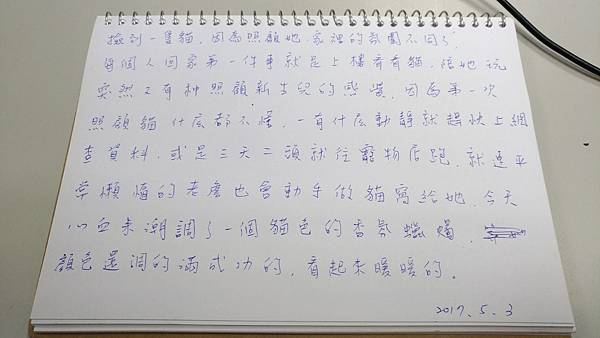 撿到一隻貓,因為照顧她,家裡的氛圍不同了,
每個人回家第一件事就是上樓看看貓,陪她玩
突然又有种照顧新生兒的感覺,因為第一次
照顧貓什麼都不懂,一有什麼動靜就趕快上網
查資料,或是三天二頭就往寵物店跑,就連平
常懶惰的老詹也會動手做貓窩給她,今天
心血來潮調了一個貓色的香氛蠟燭,
顏色還調的滿成功的,看起來暖暖的。
2017.5.3